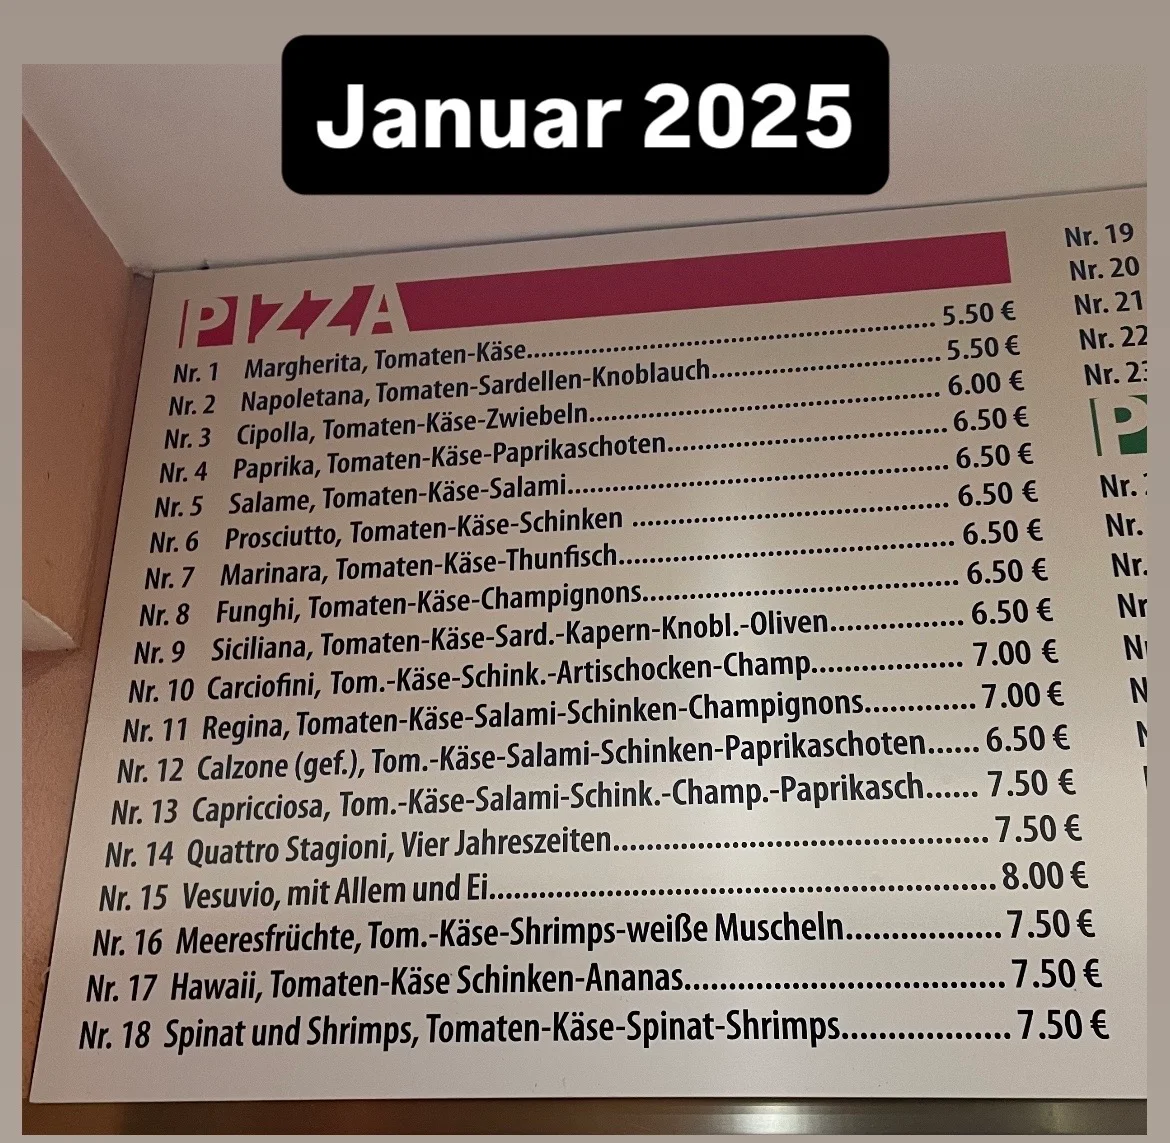 Januar 2025
PIZZA
Nr. 1 Margherita, Tomaten-Käse.......................................................... 5.50 €
Nr. 2 Napoletana, Tomaten-Sardellen-Knoblauch................................ 5.50 €
Nr. 3 Cipolla, Tomaten-Käse-Zwiebeln.................................................. 6.00 €
Nr. 4 Paprika, Tomaten-Käse-Paprikaschoten....................................... 6.50 €
Nr. 5 Salame, Tomaten-Käse-Salami..................................................... 6.50 €
Nr. 6 Prosciutto, Tomaten-Käse-Schinken ............................................ 6.50 €
Nr. 7 Marinara, Tomaten-Käse-Thunfisch.............................................. 6.50 €
Nr. 8 Funghi, Tomaten-Käse-Champignons........................................... 6.50 €
Nr. 9 Siciliana, Tomaten-Käse-Sard.-Kapern-Knobl.-Oliven................... 6.50 €
Nr. 10 Carciofini, Tom.-Käse-Schink.-Artischocken-Champ..................... 7.00 €
Nr. 11 Regina, Tomaten-Käse-Salami-Schinken-Champignons............... 7.00 €
Nr. 12 Calzone (gef.), Tom.-Käse-Salami-Schinken-Paprikaschoten...... 6.50 €
Nr. 13 Capricciosa, Tom.-Käse-Salami-Schink.-Champ.-Paprikasch...... 7.50 €
Nr. 14 Quattro Stagioni, Vier Jahreszeiten............................................. 7.50 €
Nr. 15 Vesuvio, mit Allem und Ei............................................................ 8.00 €
Nr. 16 Meeresfrüchte, Tom.-Käse-Shrimps-weiße Muscheln.................. 7.50 €
Nr. 17 Hawaii, Tomaten-Käse Schinken-Ananas..................................... 7.50 €
Nr. 18 Spinat und Shrimps, Tomaten-Käse-Spinat-Shrimps................... 7.50 €
Nr. 19
Nr. 20
Nr. 21
Nr. 22
Nr.
P
Nr.
Nr.
Nr.
Nr